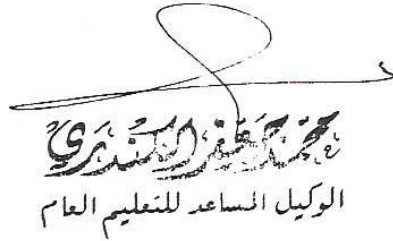 محمد جعفر الكندري
الوكيل المساعد للتعليم العام